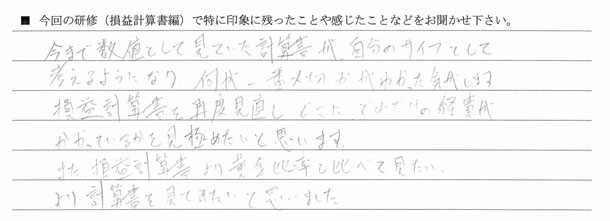 ■ 今回の研修（損益計算書編）で特に印象に残ったことや感じたことなどをお聞かせ下さい。
今まで数値として見ていた計算書が、自分のサイフとして
考えるようになり 何が一番大切かがわかった気がします
損益計算書を再度見直し どこに、どれだけの経費が
かかっているかを見極めたいと思います。
また、損益計算書より黄金比率と比べて見たい。
より計算書を見てみたいと思いました